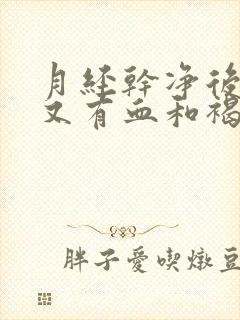 月經幹凈後
又有血和褐
胖子愛喫燉豆